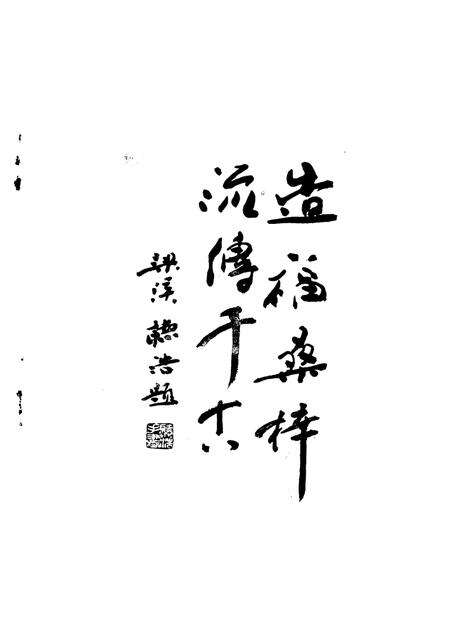 造福桑梓
流傳千古
梁溪 浩題